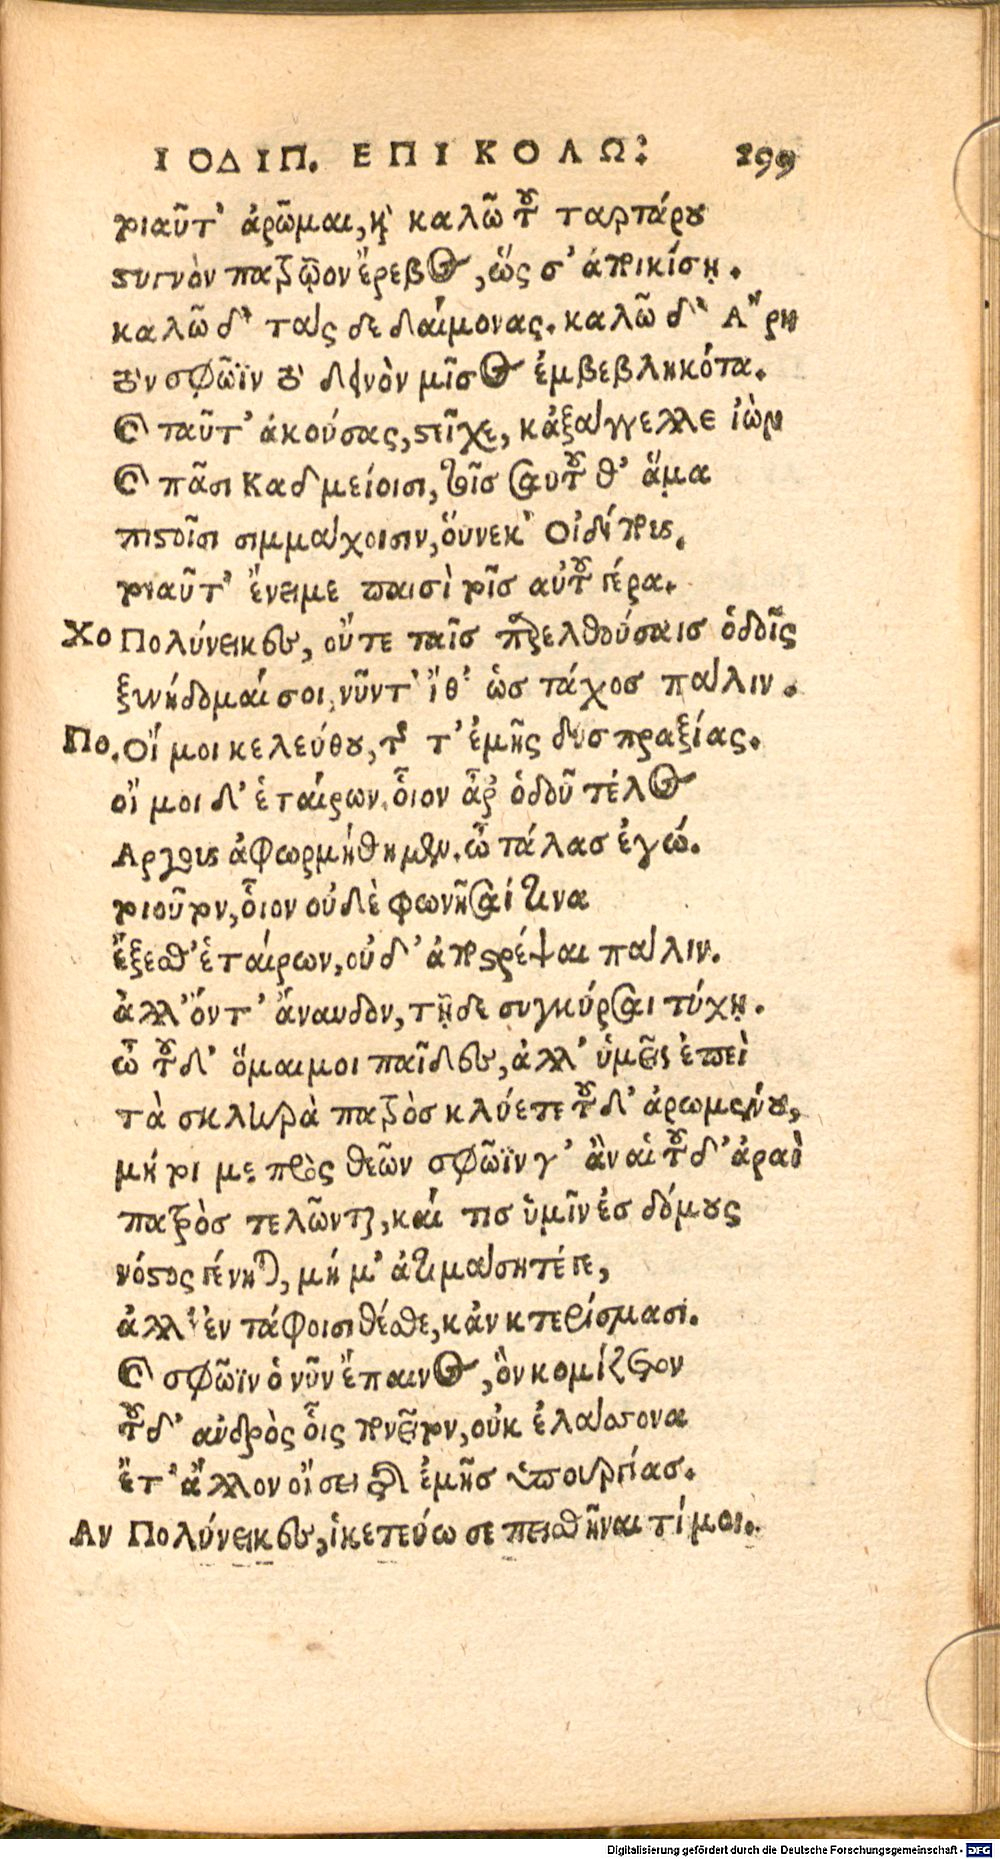 ΙΟΔΙΠ. ΕΠΙ ΚΟΛΩ: 299
τοιαῦτ' ἀρῶμαι, καὶ καλῶ τοῦ ταρτάρου
στυγνὸν πατρῷον ἔρεβος, ὥς σ' ἀποικίσῃ.
καλῶ δ' τάς δε δαίμονας. καλῶ δ' Ἄρη
τὸν σφῶϊν τὸ δεινὸν μῖσος ἐμβεβληκότα.
καὶ ταῦτ' ἀκούσας, στεῖχε, κἀξάγγελλε ἰὼν
καὶ πᾶσι Καδμείοισι, τοῖς σαυτοῦ θ' ἅμα
πιστοῖσι σιμμάχοισιν, ὅυνεκ' Οἰδίπους.
τοιαῦτ' ἔνειμε παισὶ τοῖς αὑτοῦ γέρα.
Χο Πολύνεικες, οὔτε ταῖς παρελθούσαις ὁδοῖς
ξυνήδομαί σοι, νῦν τ' ἴθ' ὡς τάχος πάλιν.
Πο. Οἴ μοι κελεύθου, τῆς τ' ἐμῆς δυσπραξίας.
οἴ μοι δ' ἑταίρων, οἷον ἆρ' ὁδοῦ τέλος
Αργους ἀφωρμήθημεν. ὦ τάλας ἐγώ.
τοιοῦτον, οἷον οὐδὲ φωνῆσαί τινα
ἔξεσθ' ἑταίρων, οὐδ' ἀποστρέψαι πάλιν.
ἀλλ' ὄντ' ἄναυδον, τῇδε συγκύρσαι τύχῃ.
ὦ τοῦ δ' ὅμαιμοι παῖδες, ἀλλ' ὑμεῖς ἐπεὶ
τὰ σκληρὰ πατρὸς κλύετε τοῦ δ' ἀρωμένου,
μή τοι με πρὸς θεῶν σφῶϊν γ' ἂν αἱ τοῦ δ' ἀραὶ
πατρὸς τελῶνται, καί τις ὑμῖν ἐς δόμους
νόστος γένηται, μή μ' ἀτιμάσητέ γε,
ἀλλ' ἐν τάφοισι θέσθε, κἀν κτερίσμασι.
καὶ σφῶϊν ὁ νῦν ἔπαινος, ὃν κομίζετον
τοῦ δ' ἀνδρὸς οἷς πονεῖτον, οὐκ ἐλάσσονα
ἔτ' ἄλλον οἴσει διὰ ἐμῆς ὑπουργίας.
Αν Πολύνεικες, ἱκετεύω σε πεισθῆναι τί μοι.
Digitalisierung gefördert durch die Deutsche Forschungsgemeinschaft - DFG